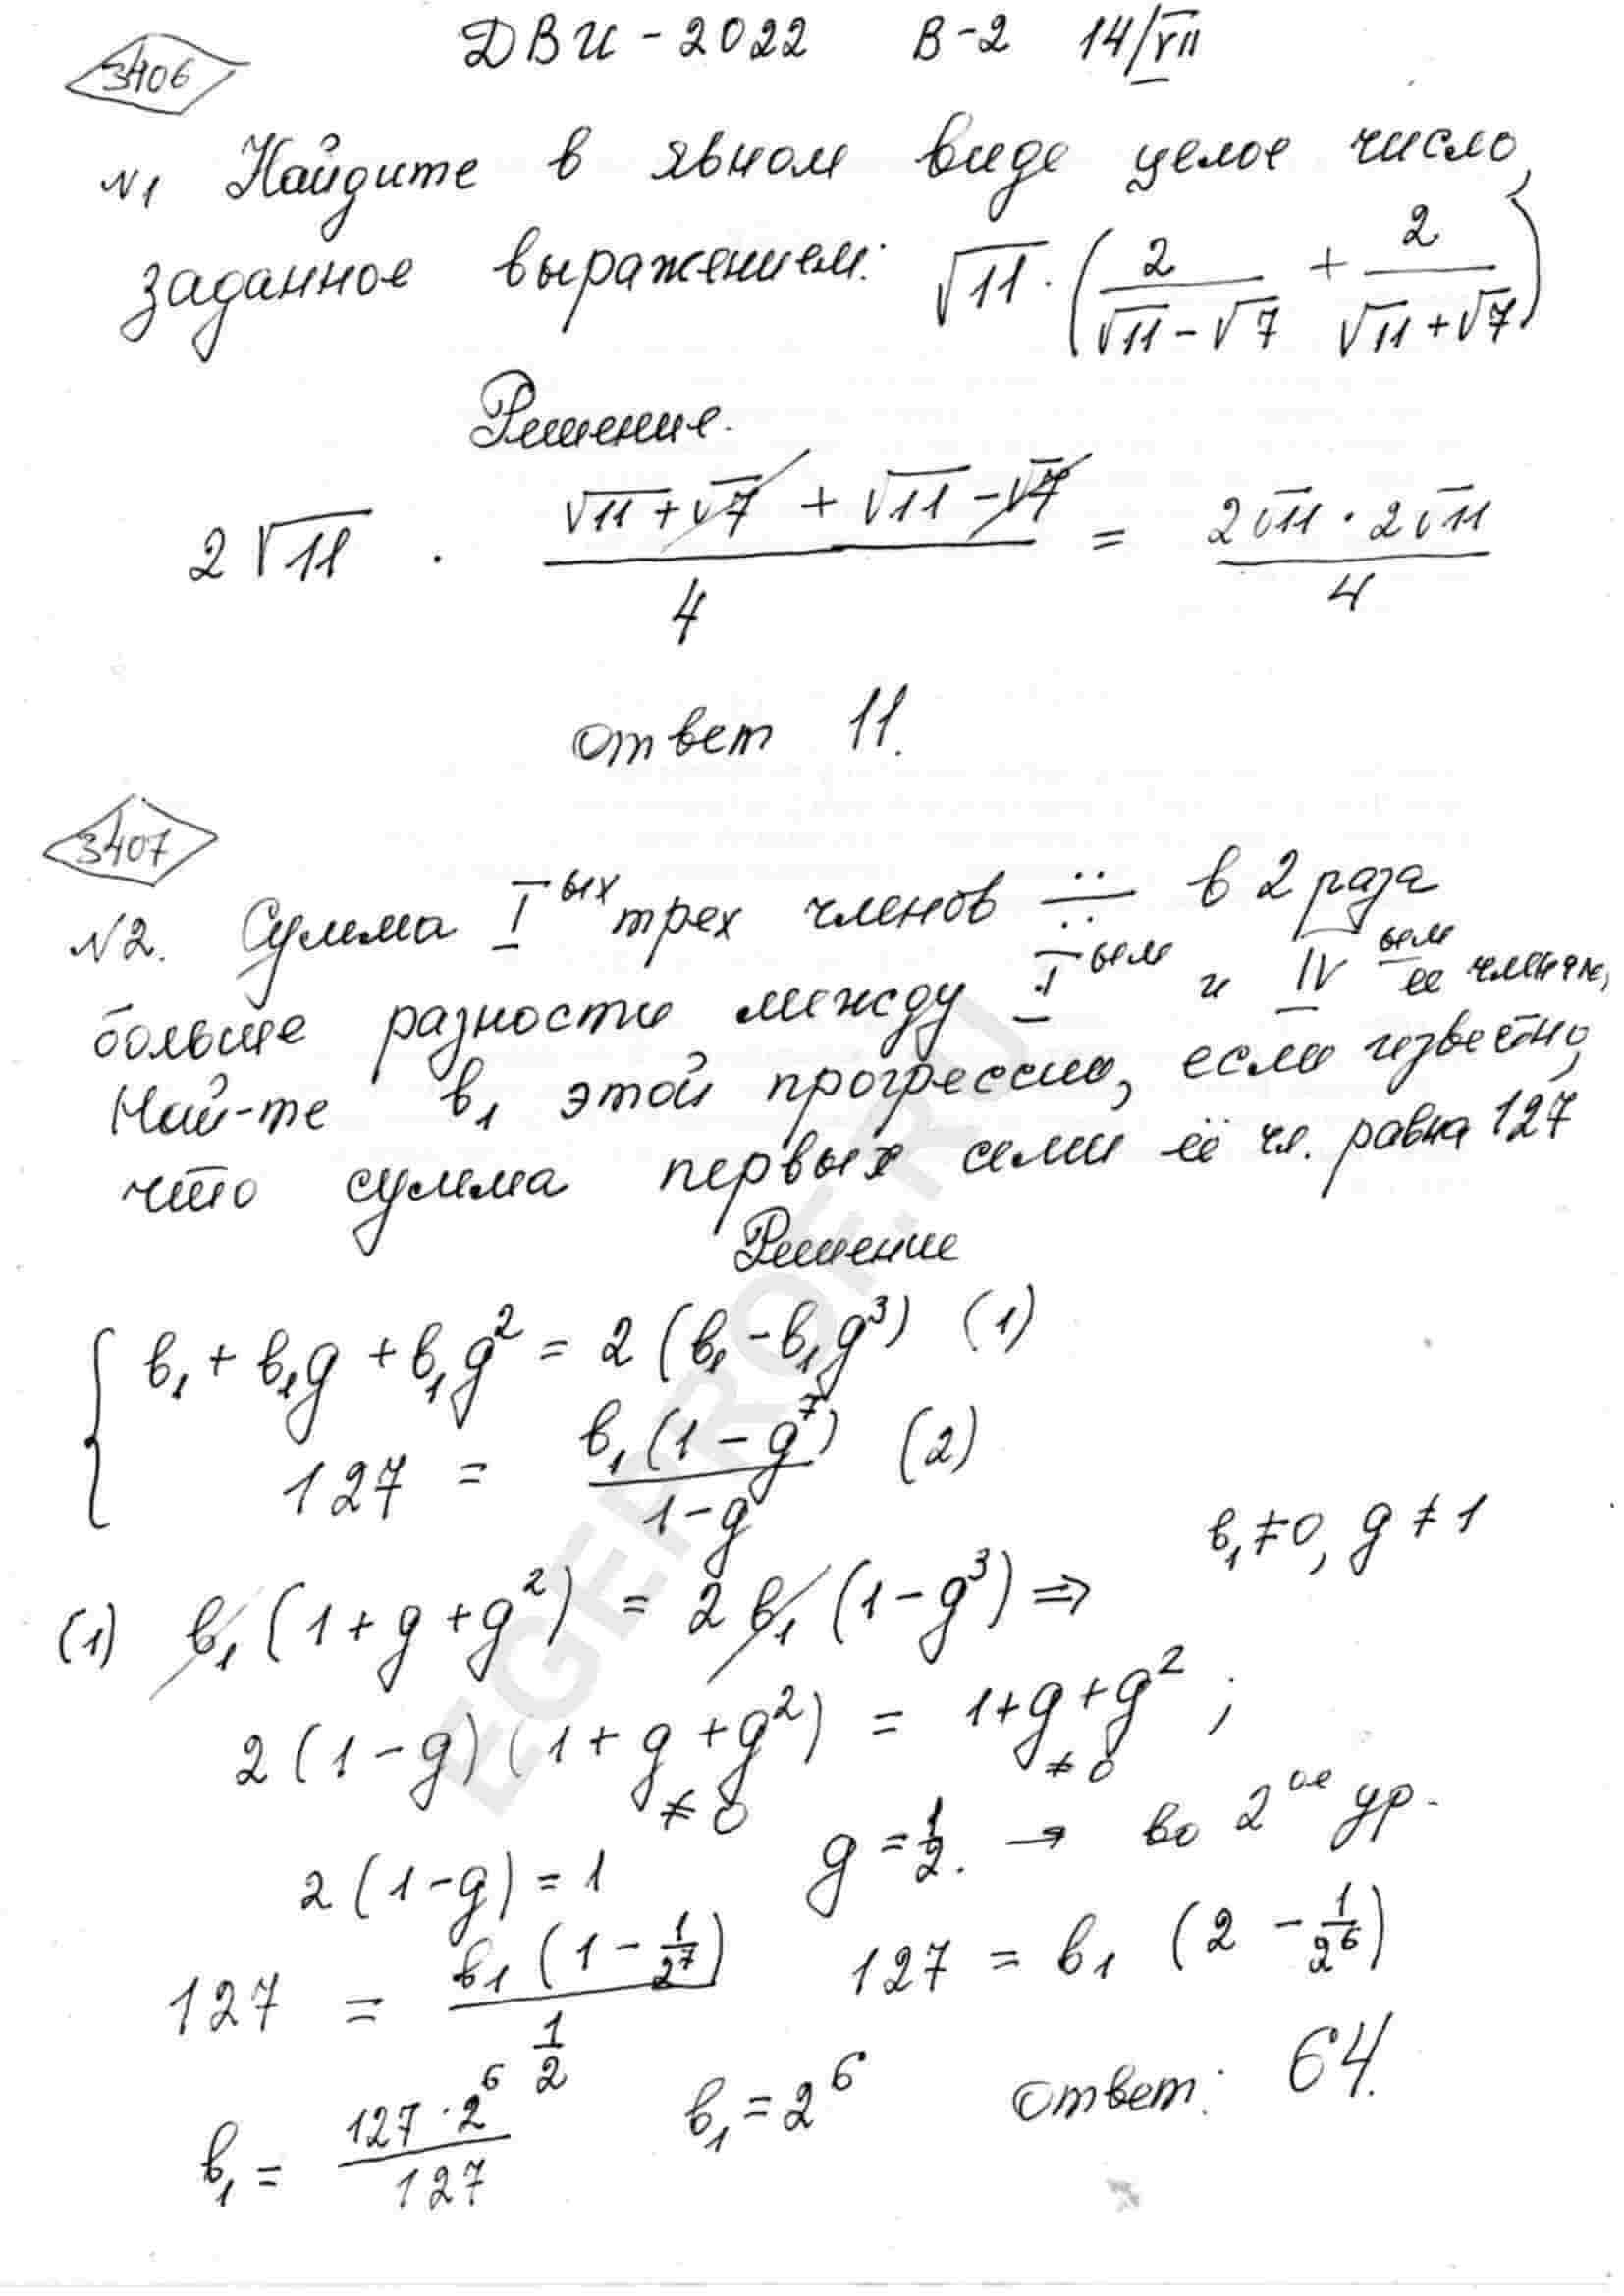 ДВИ - 2022 В-2 14/VII
3406
N1 Найдите в явном виде целое число,
заданное выражением: √11 · (2/(√11 - √7) + 2/(√11 + √7))
Решение.
2√11 · (√11 + √7 + √11 - √7)/4 = (2√11 · 2√11)/4
ответ 11.
3407
N2. Сумма I ых трех членов ÷÷ в 2 раза
больше разности между I ым и IV ым ее членами,
Най-те b₁ этой прогрессии, если известно,
что сумма первых семи её чл. равна 127
Решение
{ b₁ + b₁g + b₁g² = 2(b₁ - b₁g³) (1)
127 = b₁(1 - g⁷)/(1 - g) (2)
b₁ ≠ 0, g ≠ 1
(1) b₁(1 + g + g²) = 2b₁(1 - g³) ⇒
2(1 - g)(1 + g + g²) = 1 + g + g² ;
≠ 0 ≠ 0
2(1 - g) = 1 g = 1/2. → во 2 ое ур.
127 = b₁(1 - 1/2⁷)/(1/2) 127 = b₁(2 - 1/2⁶)
b₁ = 127 · 2⁶/127 b₁ = 2⁶ ответ: 64.
EGEPROF.RU